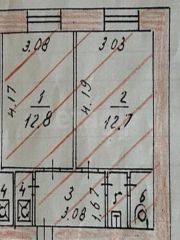 3.08 3.03
4.17 4.19
1 2
12.8 12.7
4 4 3 5 6
3.08 1.67